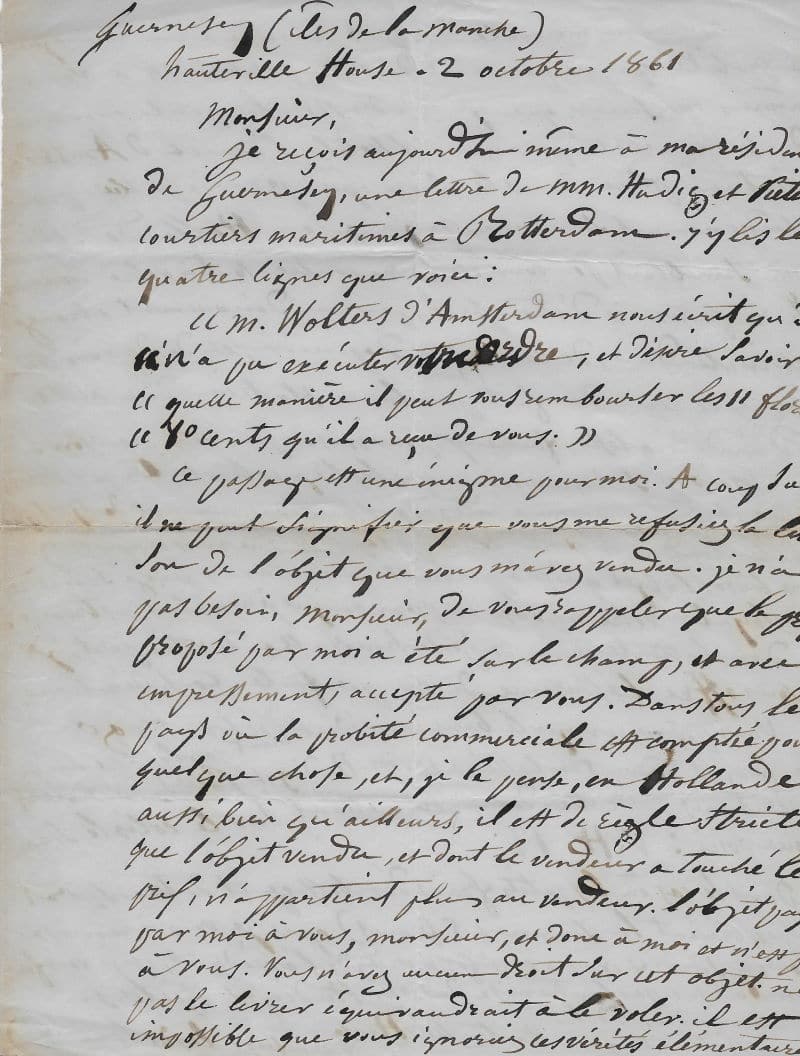 Guernesey (îles de la Manche)
hauteville House. 2 octobre 1861
Monsieur,
je reçois aujourd'hui même à ma résiden
de Guernesey, une lettre de MM. Hudig et Piete
courtiers maritimes à Rotterdam. j'y lis le
quatre lignes que voici :
« M. Wolters d'Amsterdam nous écrit qu'i
« n'a pu exécuter votre ordre, et désire savoir
« quelle manière il peut vous rembourser les 11 flor
« cents qu'il a reçu de vous. »
ce passage est une énigme pour moi. A coup su
il ne peut signifier que vous me refusiez la liv
son de l'objet que vous m'avez vendu. je n'a
pas besoin, Monsieur, de vous rappeler que le p
proposé par moi a été sur le champ, et avec
empressement, accepté par vous. Dans tous le
pays où la probité commerciale est comptée pou
quelque chose, et, je le pense, en Hollande
aussi bien qu'ailleurs, il est de règle stricte
que l'objet vendu, et dont le vendeur a touché le
prix, n'appartient plus au vendeur. l'objet pay
par moi à vous, monsieur, est donc à moi et n'est p
à vous. Vous n'avez aucun droit sur cet objet. ne
pas le livrer équivaudrait à le voler. il est
impossible que vous ignoriez ces vérités élémentaire